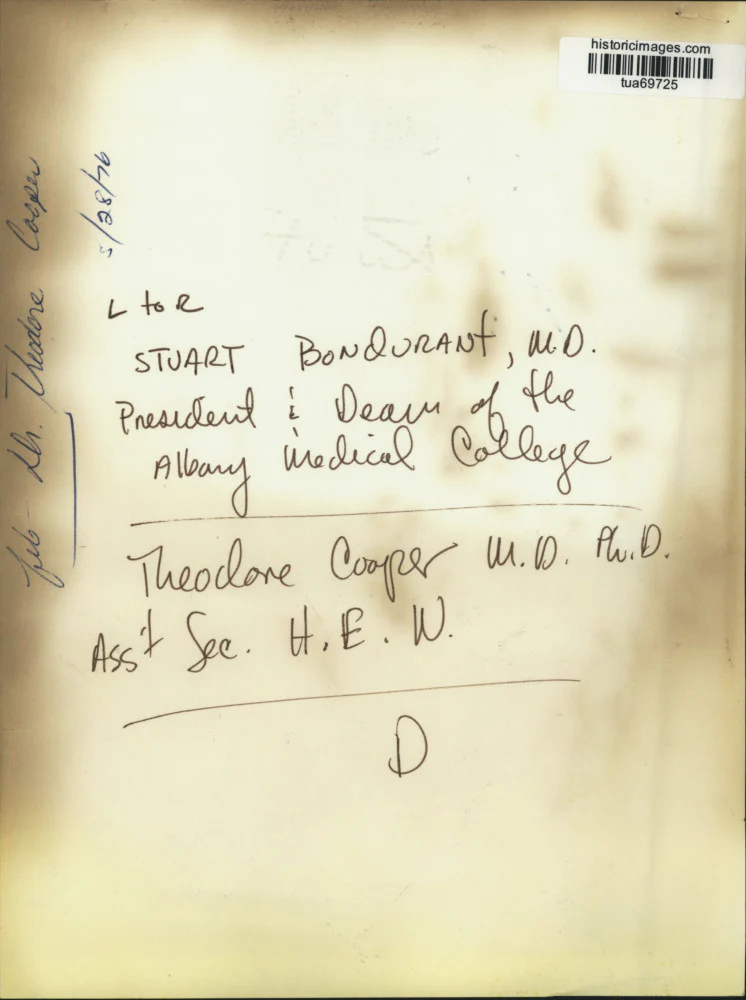 historicimages.com
tua69725
L to R
STUART BONDURANT, M.D.
President & Dean of the
Albany Medical College
Theodore Cooper M.D. Ph.D.
Ass't Sec. H.E.W.
D
Dr. Theodore Cooper
5/28/76